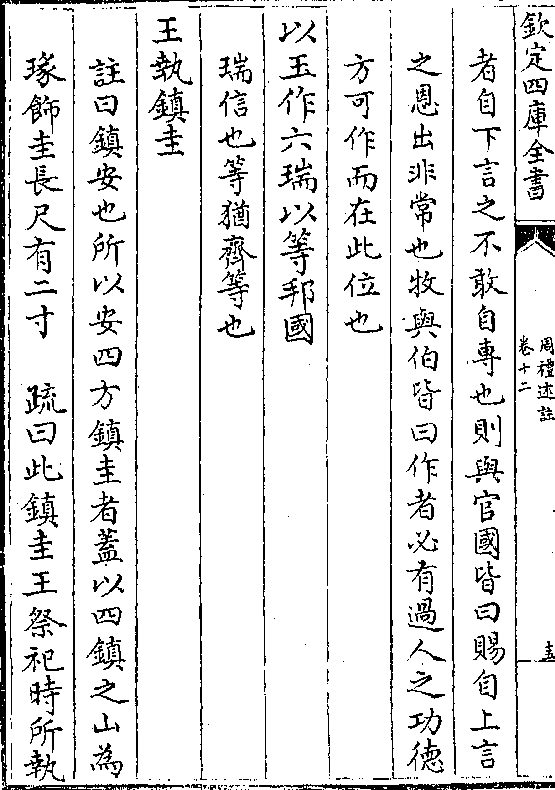 欽定四庫全書
周禮述註
卷十二
者自下言之不敢自專也則與官國皆曰賜自上言
之恩出非常也牧與伯皆曰作者必有過人之功德
方可作而在此位也
以玉作六瑞以等邦國
瑞信也等猶齊等也
王執鎮圭
註曰鎮安也所以安四方鎮圭者蓋以四鎮之山為
瑑飾圭長尺有二寸　疏曰此鎮圭王祭祀時所執